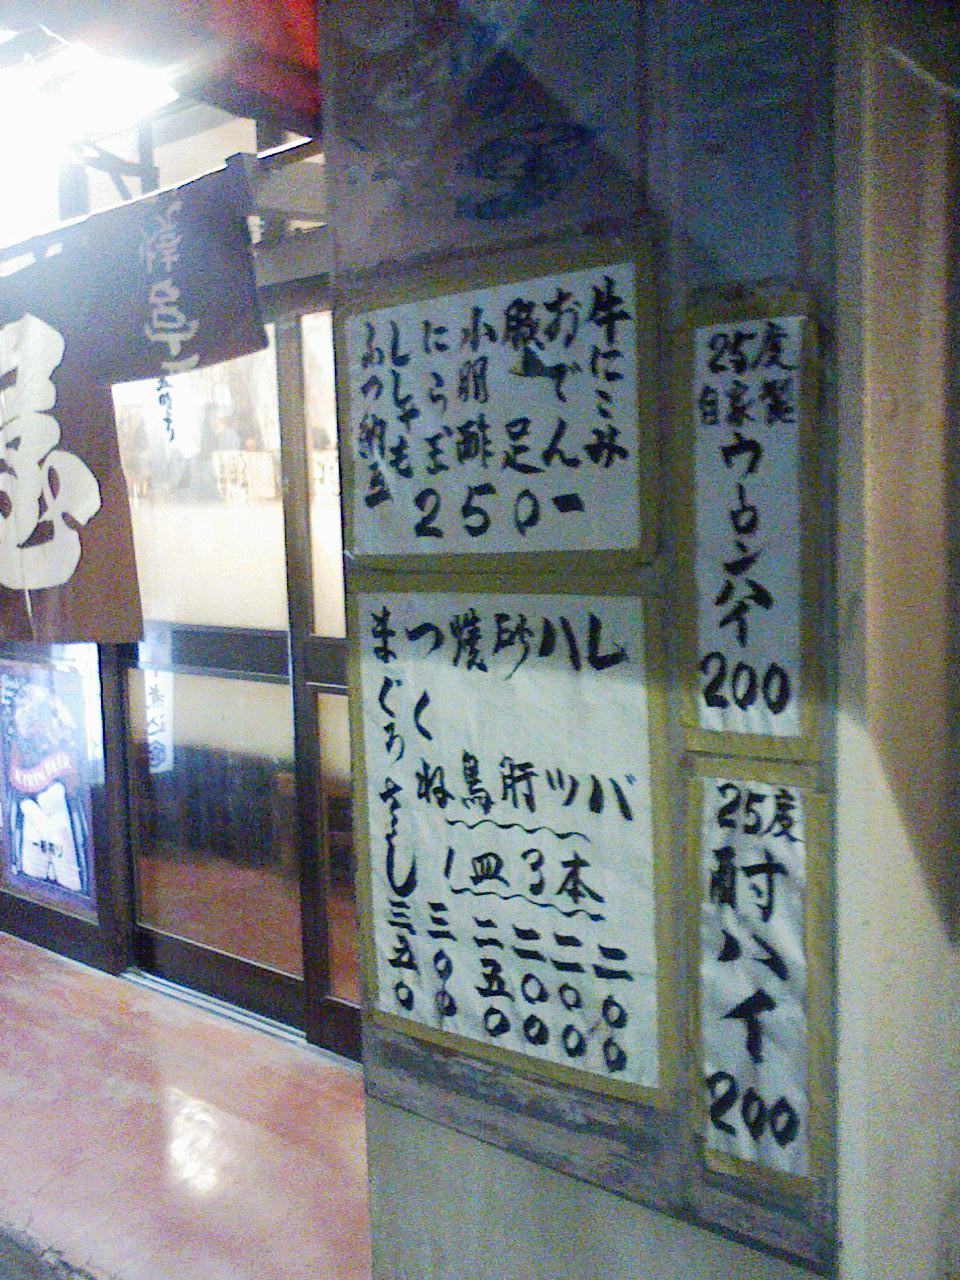 25度
自家製
ウーロンハイ
200
25度
酎ハイ
200
牛にこみ
おでん
豚足
小肌酢
にら玉
ししゃも
ぶつ納豆
250ー
レバ 二〇〇
ハツ 二〇〇
砂肝 二〇〇
焼鳥 二五〇
つくね 三〇〇
まぐろさし 三五〇
1皿3本
KIRIN BEER